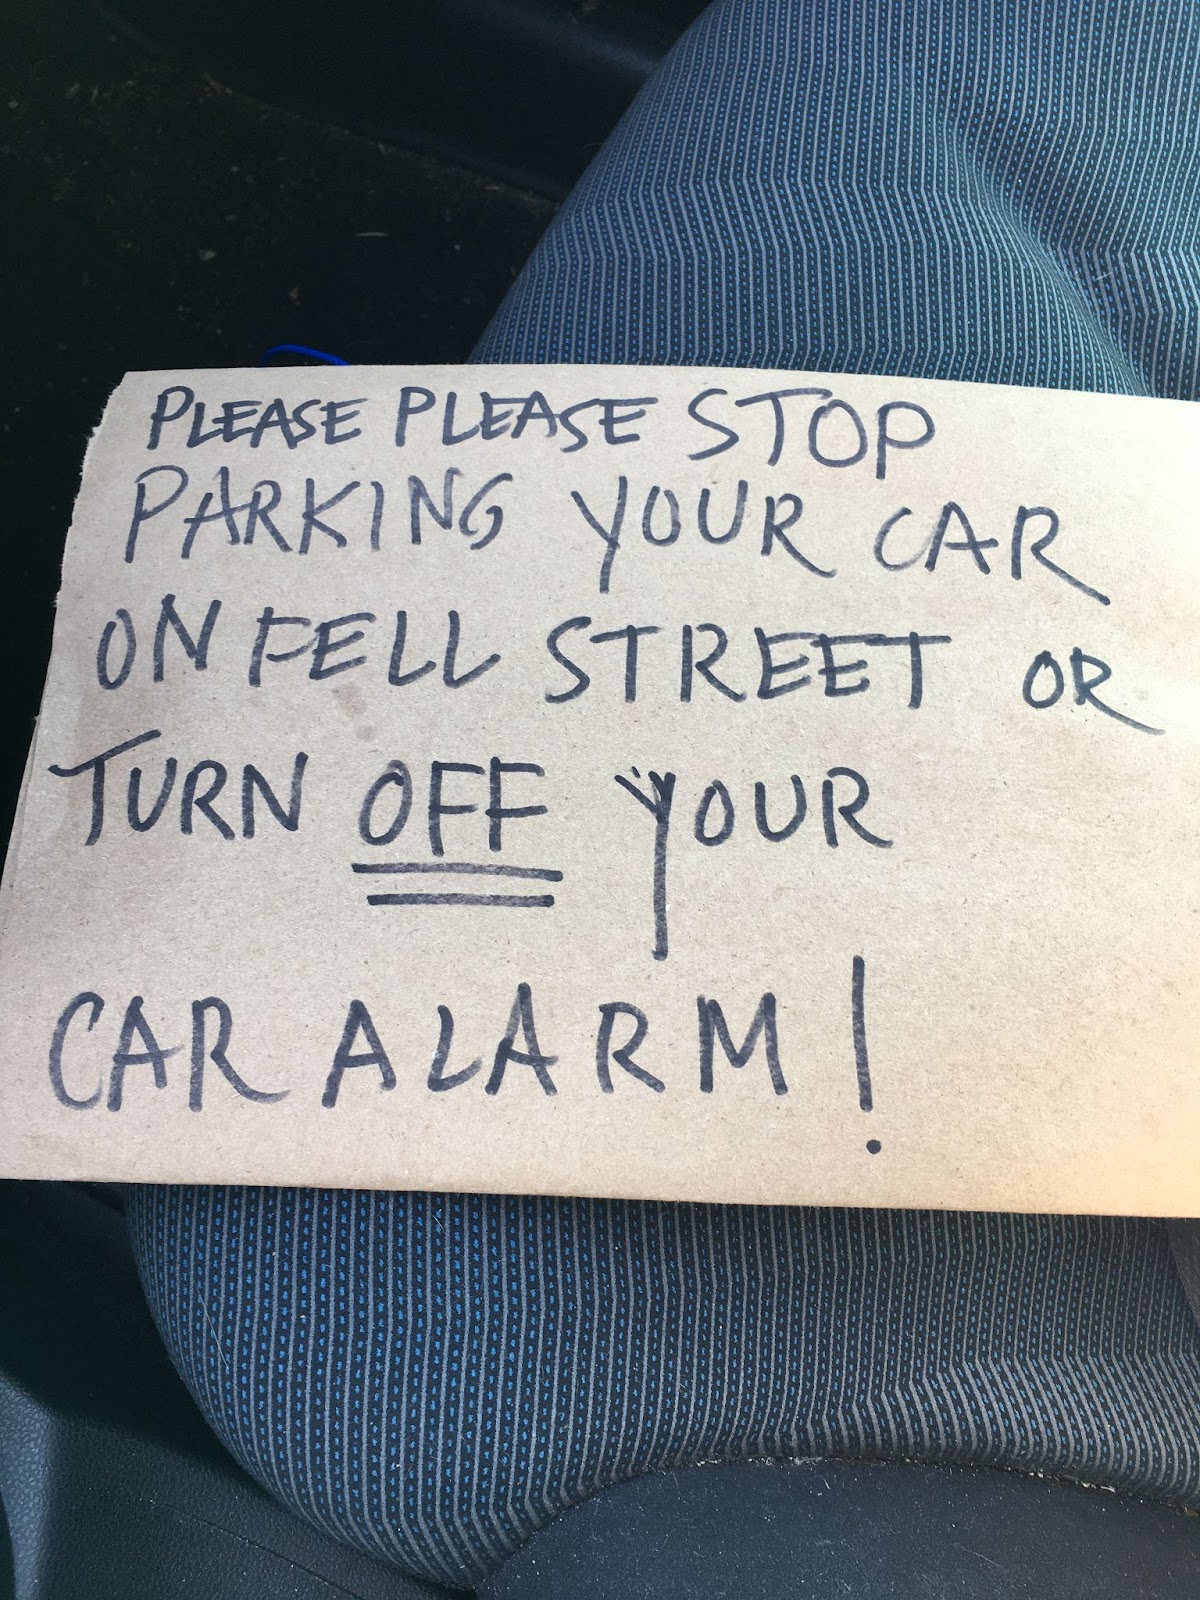 PLEASE PLEASE STOP
PARKING YOUR CAR
ON FELL STREET OR
TURN OFF YOUR
CAR ALARM!